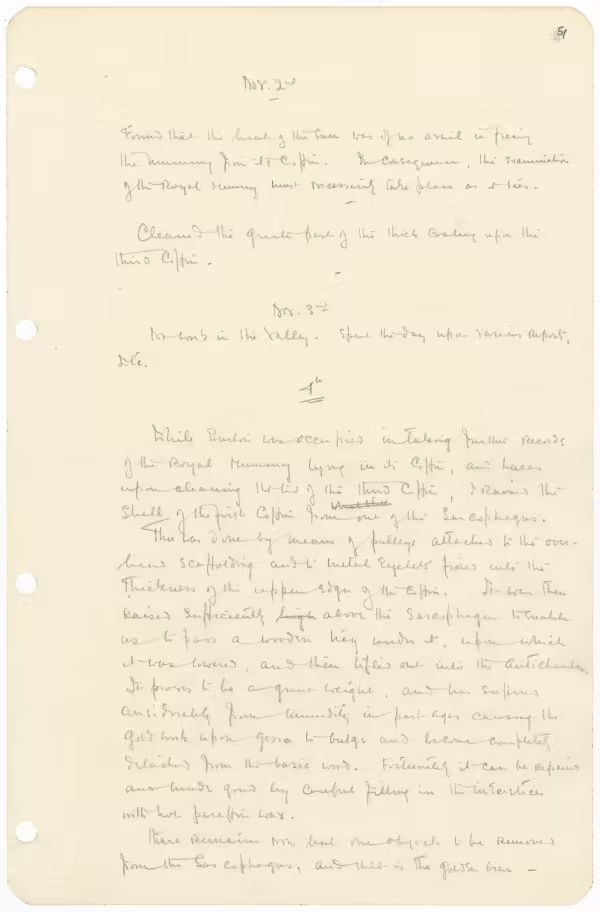 51
Nov. 2nd
Found that the heat of the sun was of no avail in freeing
the mummy from its coffin. In consequence, the examination
of the Royal Mummy must necessarily take place as it lies.
Cleaned the greater part of the thick coating upon the
third coffin.
Nov. 3rd
No work in the Valley. Spent the day upon various reports,
etc.
4th
While Burton was occupied in taking further records
of the Royal Mummy lying in its coffin, and Lucas
upon cleaning the lid of the third coffin, I raised the
Shell of the first coffin from out of the Sarcophagus.
This was done by means of pulleys attached to the over-
head scaffolding and to metal eyelets fixed into the
thickness of the upper edge of the coffin. It was then
raised sufficiently high above the Sarcophagus to enable
us to pass a wooden tray under it, upon which
it was lowered, and then lifted out into the Antichamber.
It proves to be a great weight, and has suffered
considerably from humidity in past ages causing the
gold work upon gesso to bulge and become completely
detached from the basic wood. Fortunately it can be repaired
and made good by careful filling in the interstices
with hot paraffin wax.
There remains now but one object to be removed
from the Sarcophagus, and that is the golden bier –